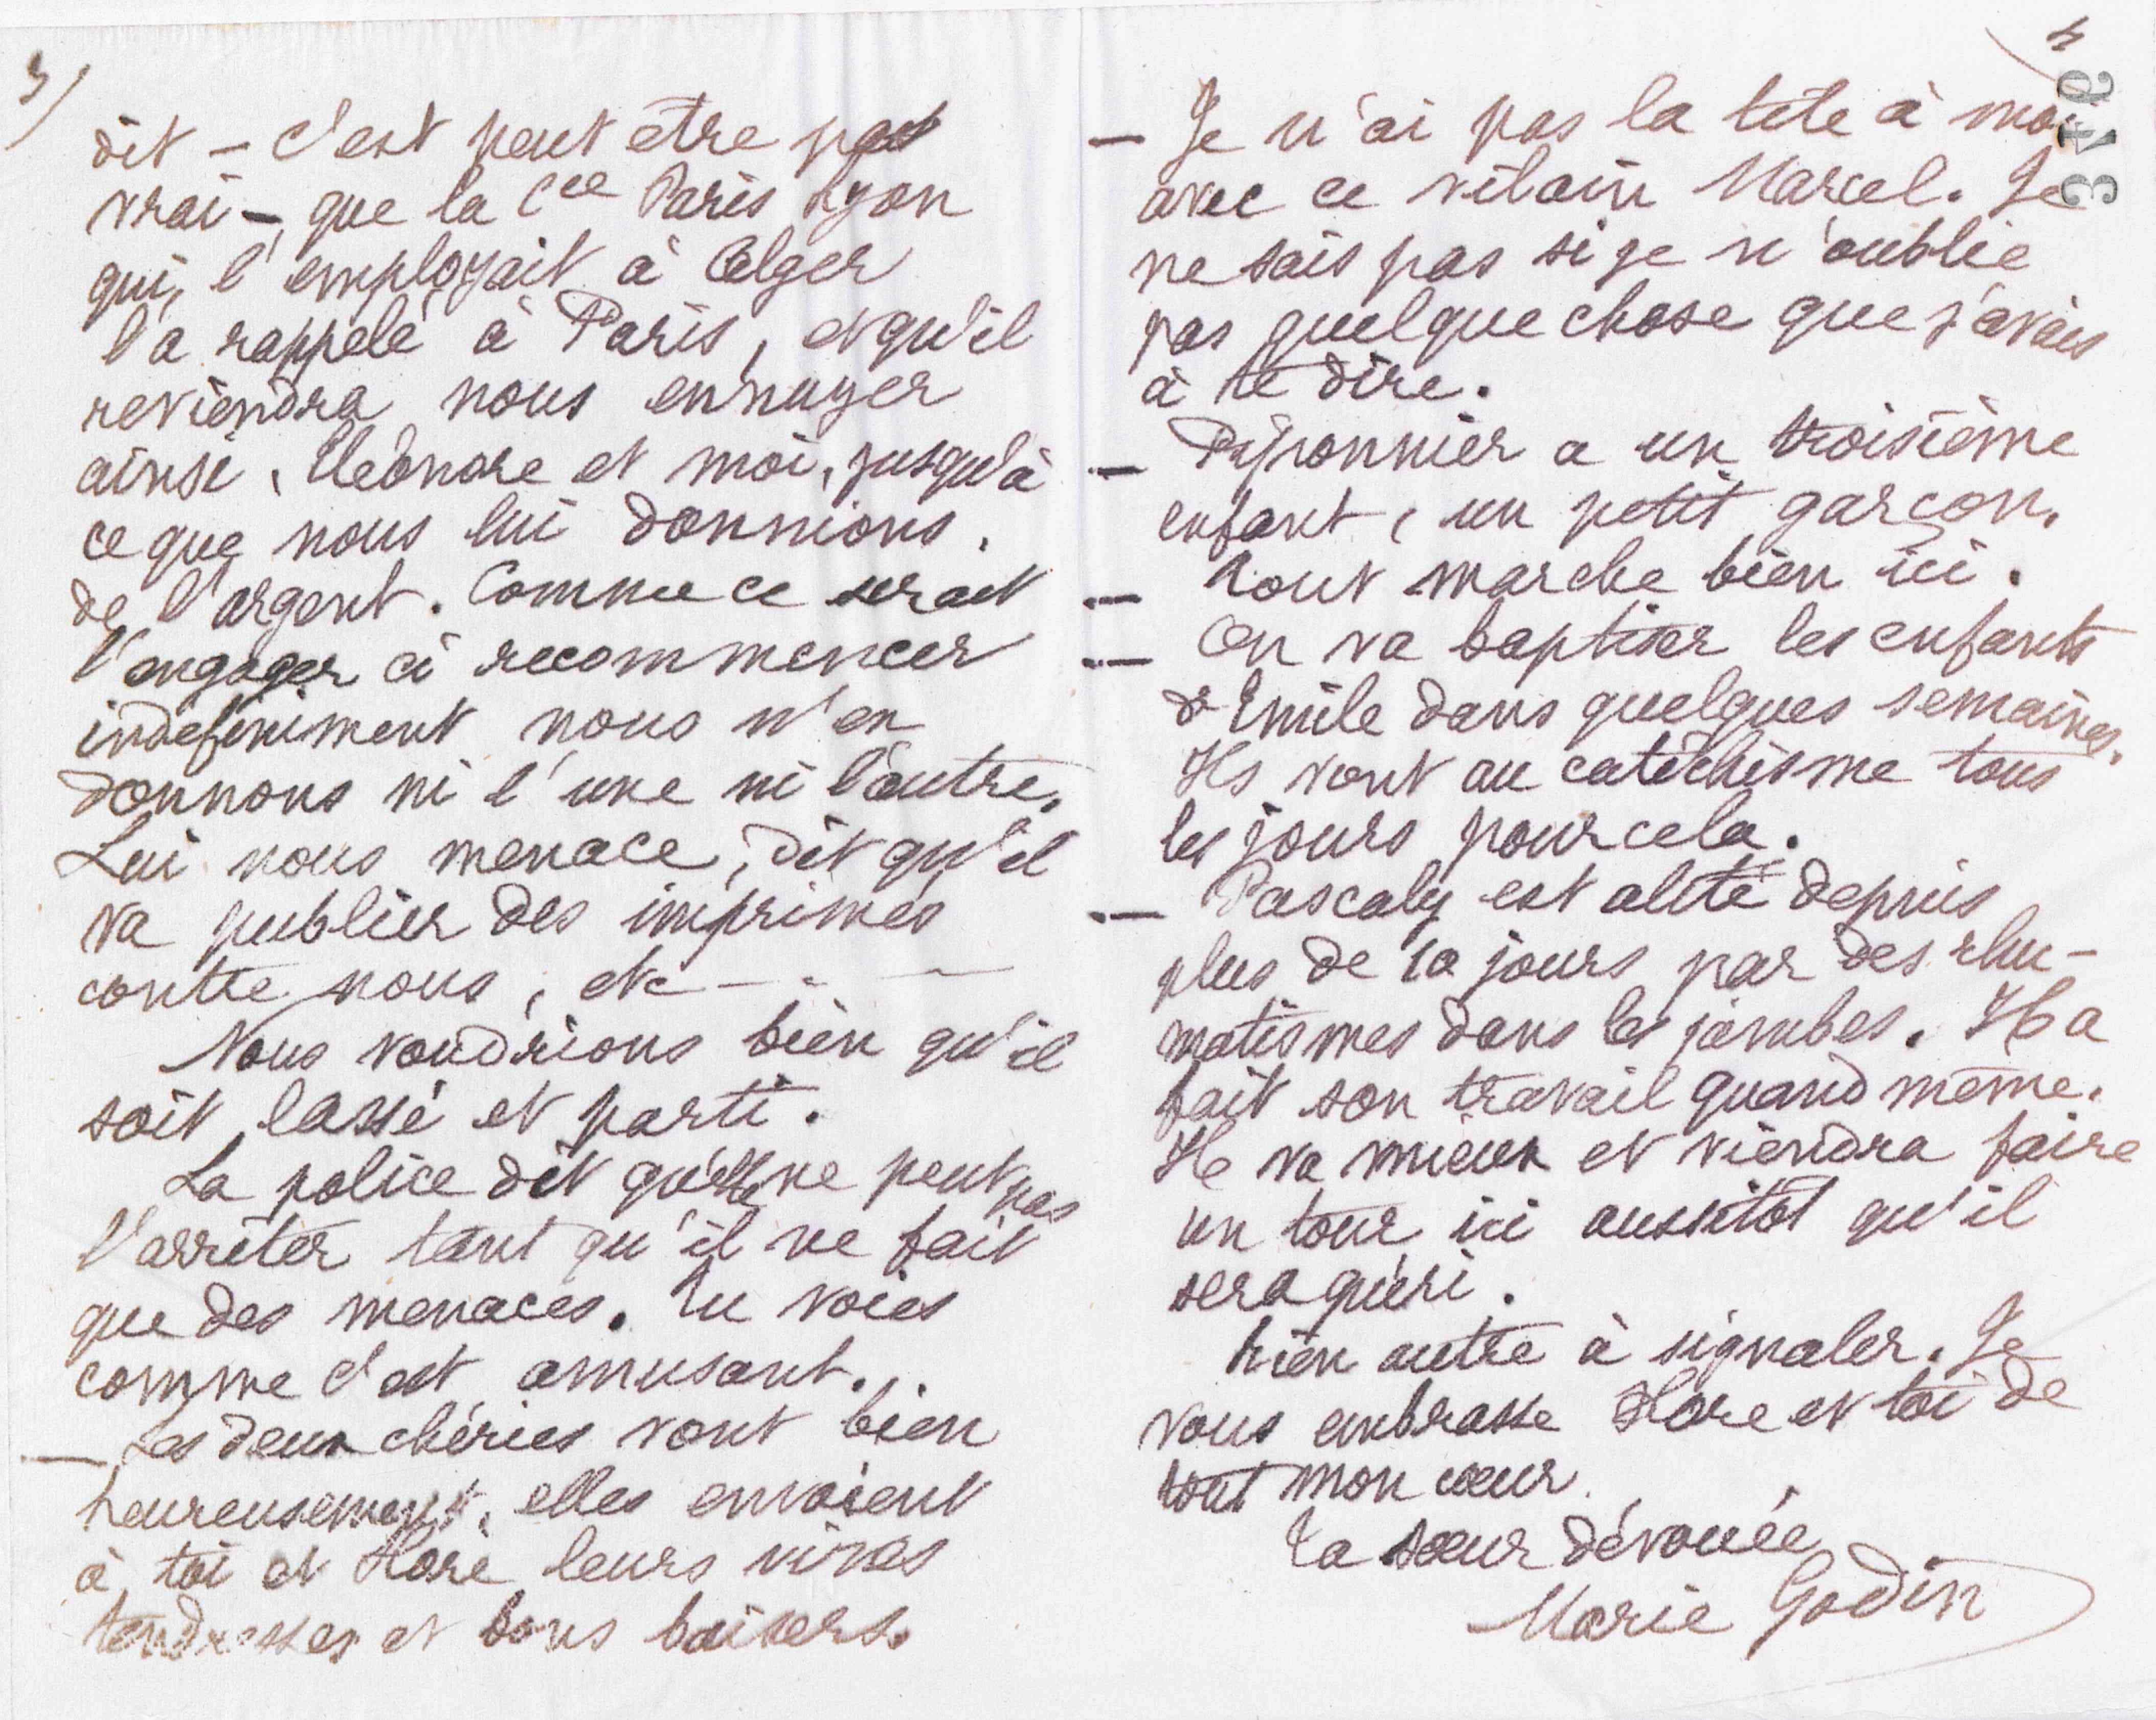 3/
dit – c'est peut etre pas
vrai –, que la Cie Paris Lyon
qui, l'employait à Alger
l'a rappelé à Paris, et qu'il
reviendra nous ennuyer
ainsi, Eléonore et moi, jusqu'à
ce que nous lui donnions,
de l'argent. Comme ce serait
l'engager à recommencer
indéfiniment nous n'en
donnons ni l'une ni l'autre.
Lui nous menace, dit qu'il
va publier des imprimés
contre nous, etc – . –
Nous voudrions bien qu'il
soit lassé et parti.
La police dit qu'elle ne peut pas
l'arrêter tant qu'il ne fait
que des menaces. Tu vois
comme c'est amusant.
— Les deux chéries vont bien
heureusement, elles envoient
à toi et Flore leurs vives
tendresses et bons baisers.
4
346
— Je n'ai pas la tête à moi
avec ce vilain Marcel. Je
ne sais pas si je n'oublie
pas quelque chose que j'avais
à te dire.
— a un troisième
enfant, un petit garçon.
— Tout marche bien ici.
— On va baptiser les enfants
d'Emile dans quelques semaines.
Ils vont au catéchisme tous
les jours pour cela.
— Pascaly est alité depuis
plus de 10 jours par des rhu-
matismes dans les jambes. Il a
fait son travail quand même.
Il va mieux et viendra faire
un tour ici aussitôt qu'il
sera guéri.
Rien autre à signaler. Je
vous embrasse Flore et toi de
tout mon cœur.
Ta sœur dévouée
Marie Godin